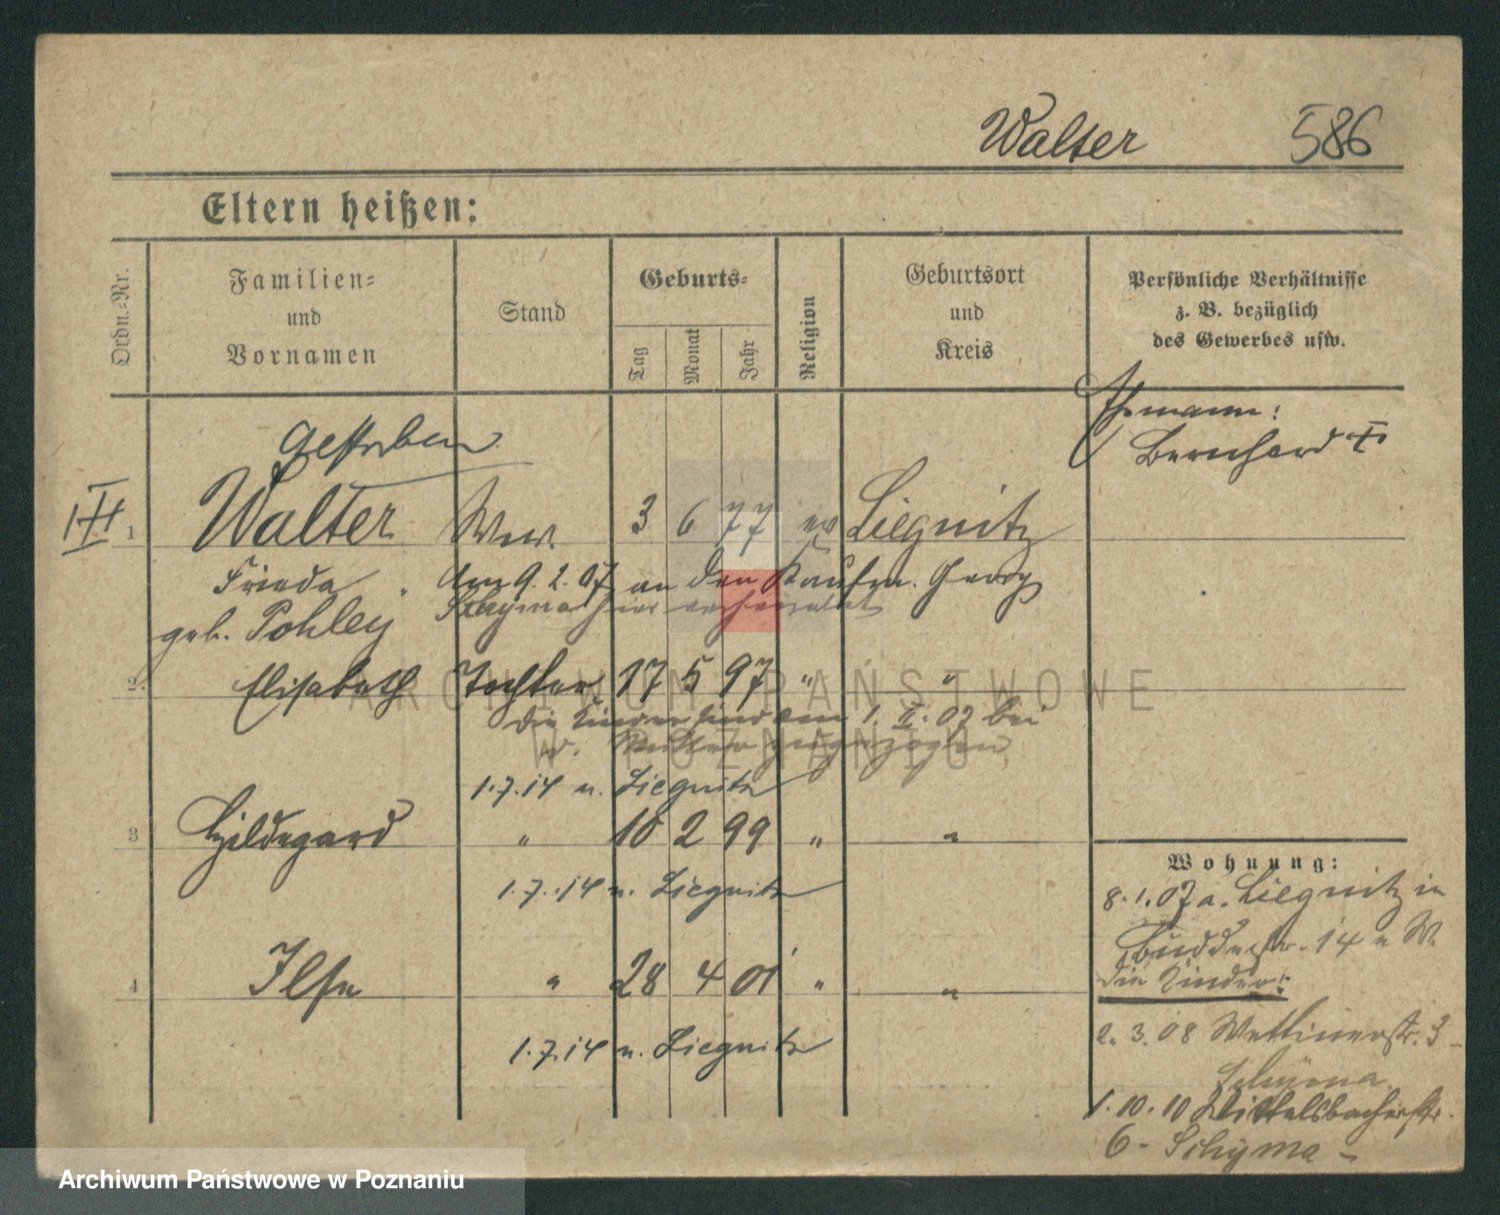 Walter 586
Eltern heißen:
Ordn.-Nr.
Familien-
und
Vornamen
Stand
Geburts-
Tag
Monat
Jahr
Religion
Geburtsort
und
Kreis
Persönliche Verhältnisse
z. B. bezüglich
des Gewerbes usw.
Ehemann:
Bernhard †
Gestorben
1 Walter Ww. 3 6 77 ev Liegnitz
Frieda
am 9. 2. 07 an den Kaufm. Georg
Schyma hier verheiratet
geb. Pohley
2. Elisabeth Tochter 17 5 97 " "
die Kinder sind am 1. II. 07 bei
d. Mutter zugezogen
1.7.14 n. Liegnitz
3 Hildegard " 10 2 99 " "
1.7.14 n. Liegnitz
4 Ilse " 28 4 01 " "
1.7.14 n. Liegnitz
Wohnung:
8.1.07 a. Liegnitz in
Buddestr. 14 W.
die Kinder:
2.3.08 Wettinerstr. 3
Schyma
1.10.10 Wittelsbacherstr.
6 - Schyma -
ARCHIWUM PAŃSTWOWE
W POZNANIU
Archiwum Państwowe w Poznaniu